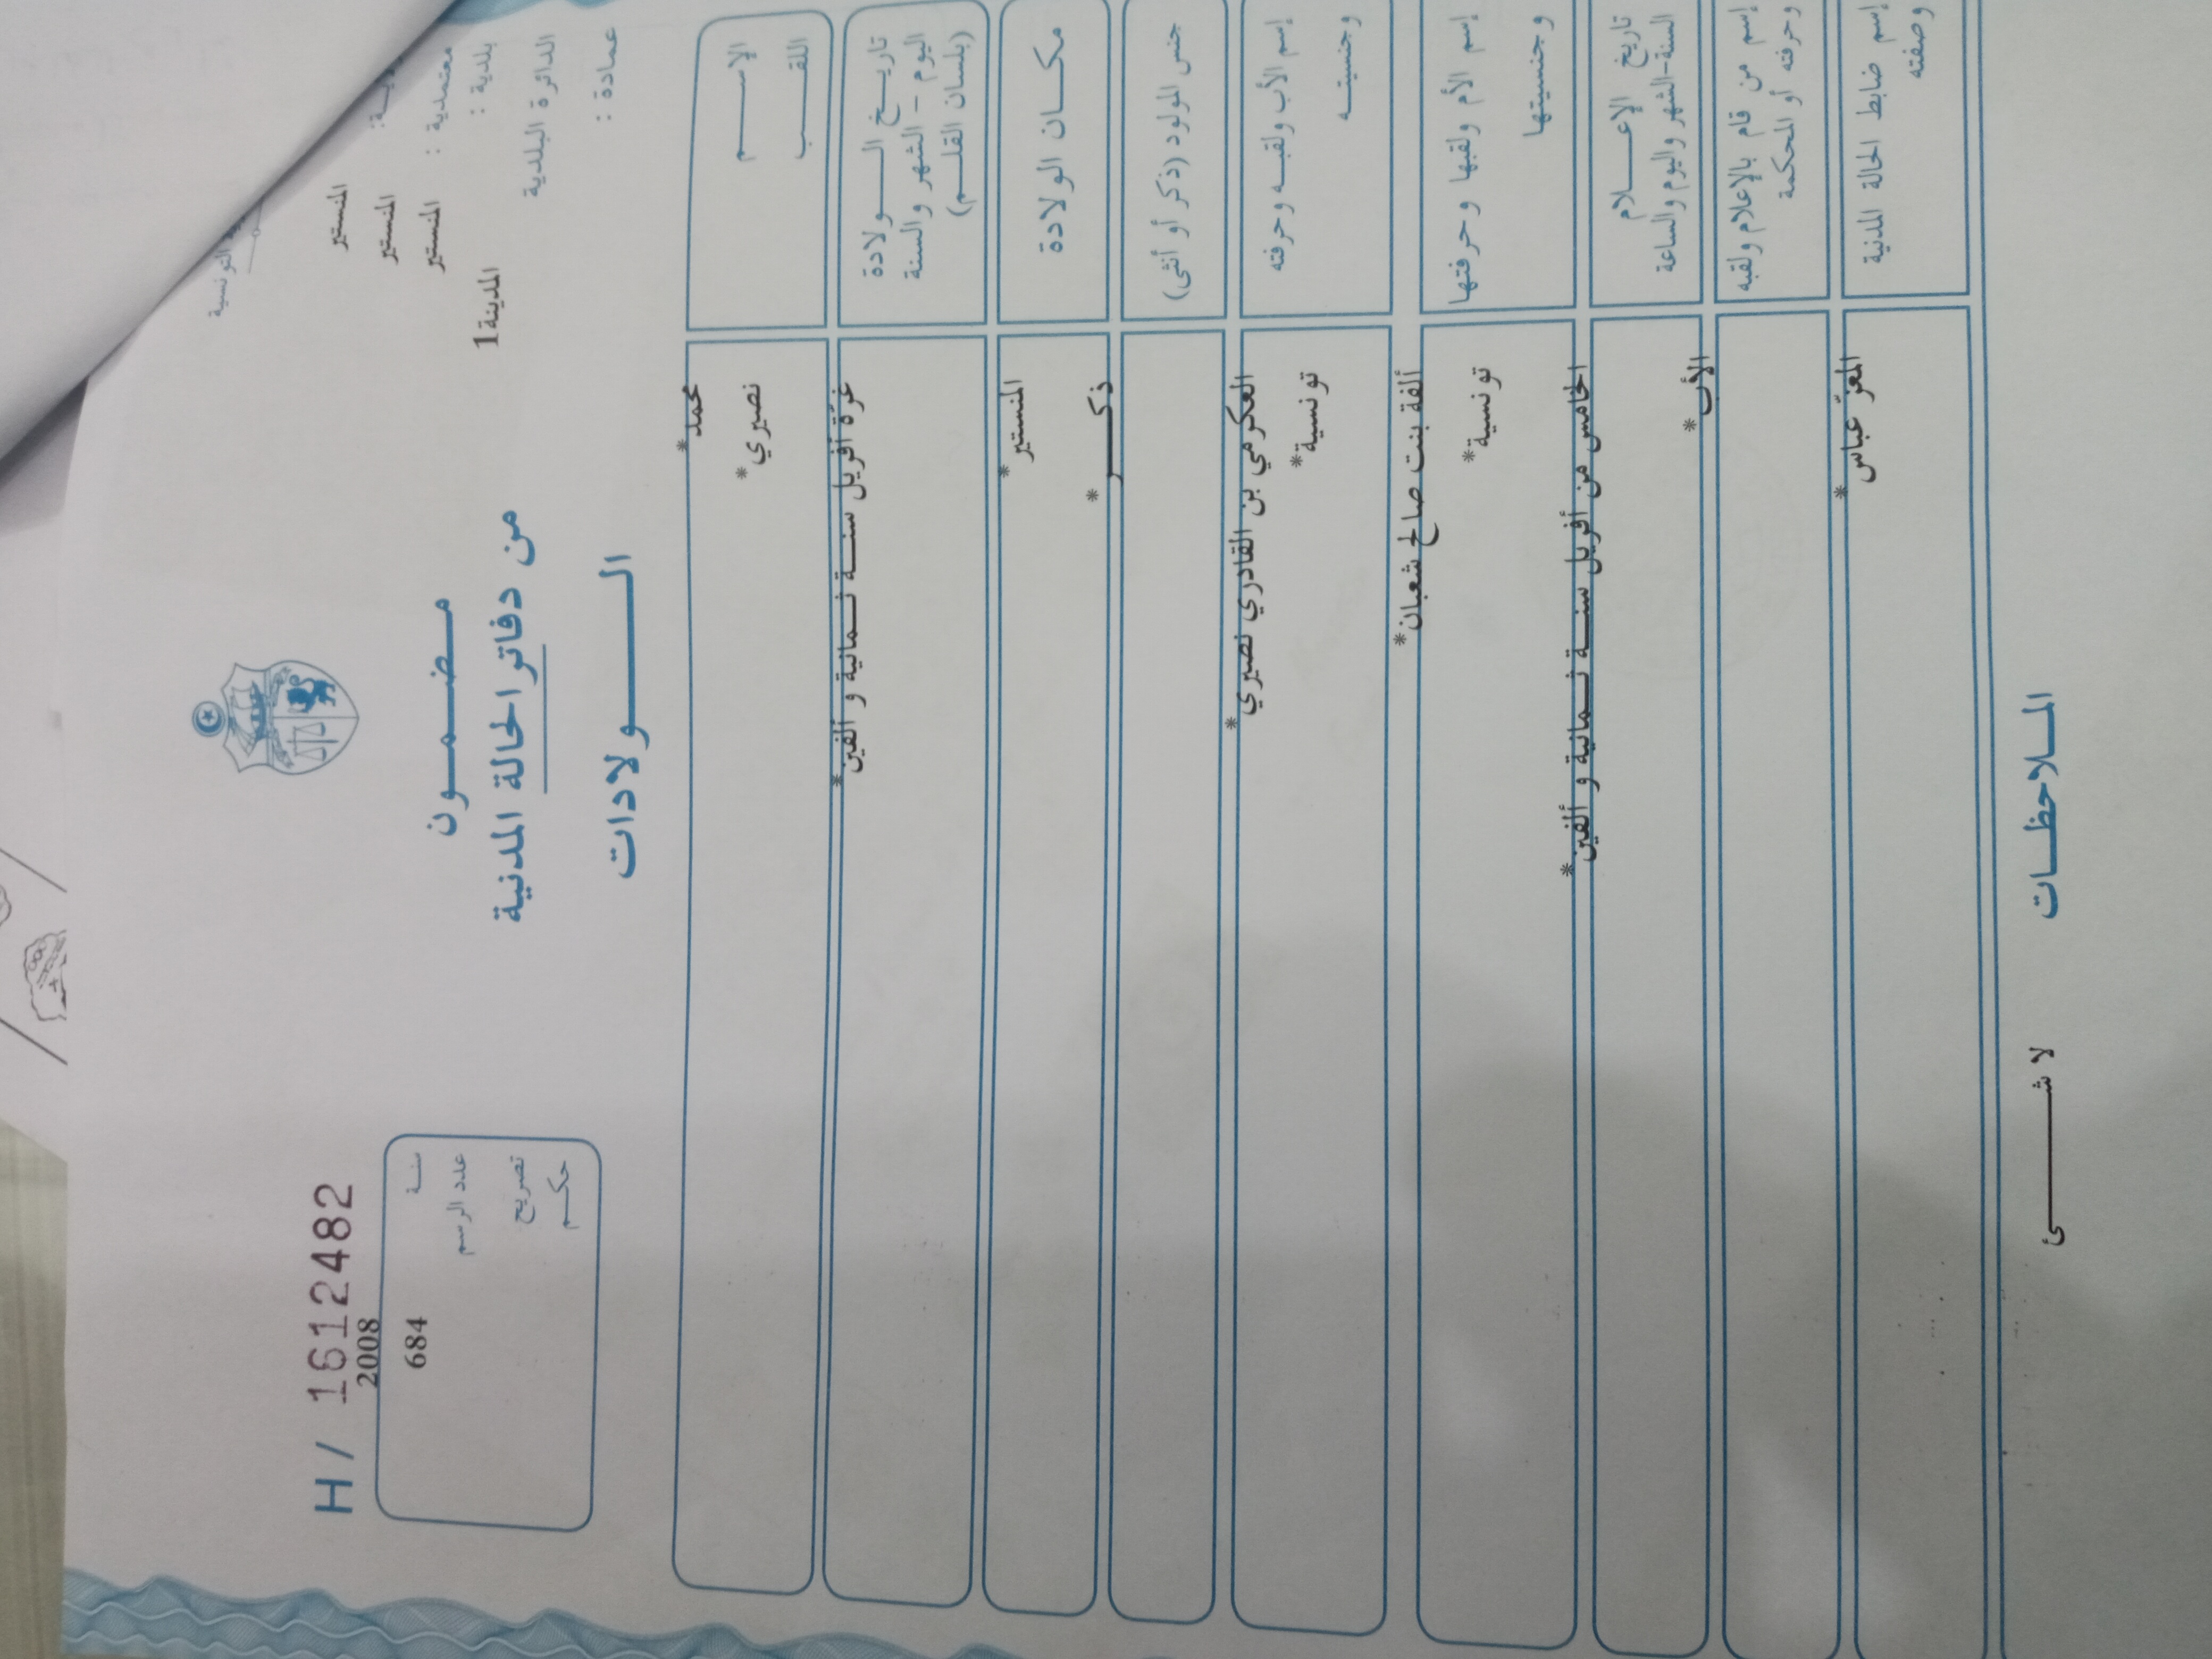 التونسية
المنستير
معتمدية : المنستير
بلدية : المنستير
الدائرة البلدية المدينة1
عمادة :
مضمون
من دفاتر الحالة المدنية
الولادات
H/ 1612482
2008
سنة
عدد الرسم 684
تصريح
حكم
الإسم محمد*
اللقب نصيري*
تاريخ الولادة
اليوم - الشهر والسنة
(بلسان القلم)
غرّة أفريل سنة ثمانية و ألفين*
مكان الولادة المنستير*
جنس المولود (ذكر أو أنثى) ذكر*
إسم الأب ولقبه وحرفته
وجنسيته
العكرمي بن القادري نصيري*
تونسية*
إسم الأم ولقبها وحرفتها
وجنسيتها
ألفة بنت صالح شعبان*
تونسية*
تاريخ الإعلام
السنة-الشهر واليوم والساعة
الخامس من أفريل سنة ثمانية و ألفين*
إسم من قام بالإعلام ولقبه
وحرفته أو المحكمة
الأب*
إسم ضابط الحالة المدنية
وصفته
المعزّ عباس*
الملاحظات
لا شئ